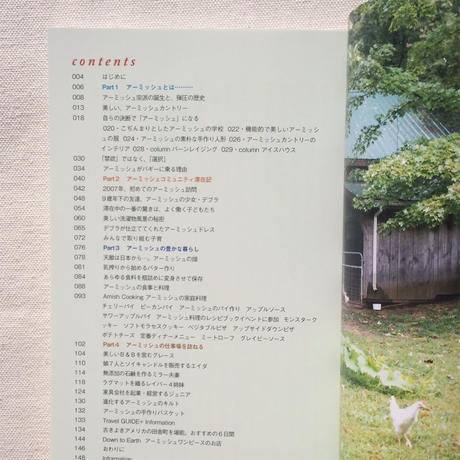 contents
004 はじめに
006 Part1 アーミッシュとは………
008 アーミッシュ宗派の誕生と、弾圧の歴史
013 美しい、アーミッシュカントリー
018 自らの決断で「アーミッシュ」になる
020・こぢんまりとしたアーミッシュの学校 022・機能的で美しいアーミッシュ
の服 024・アーミッシュの素朴な手作り人形 026・アーミッシュカントリーの
インテリア 028・column バーンレイジング 029・column アイスハウス
030 「禁欲」ではなく、「選択」
034 アーミッシュがバギーに乗る理由
040 Part2 アーミッシュコミュニティ滞在記
042 2007年、初めてのアーミッシュ訪問
048 9歳年下の友達、アーミッシュの少女・デブラ
054 滞在中の一番の驚きは、よく働く子どもたち
060 美しい洗濯物風景の秘密
065 デブラが仕立ててくれたアーミッシュドレス
072 みんなで取り組む子育て
076 Part3 アーミッシュの豊かな暮らし
078 天敵は日本から…。アーミッシュの畑
081 乳搾りから始めるバター作り
084 あらゆる食料を瓶詰めに変身させて保存
088 アーミッシュの食事と料理
093 Amish Cooking アーミッシュの家庭料理
チェリーパイ ピーカンパイ アーミッシュのパイ作り アップルソース
サワーアップルパイ アーミッシュ料理のレシピブックイベントに参加 モンスターク
ッキー ソフトモラセスクッキー ベジタブルピザ アップサイドダウンピザ
ポテトチーズ 定番ディナーメニュー ミートローフ グレイビーソース
102 Part4 アーミッシュの仕事場を訪ねる
104 美しいB＆Bを営むグレース
110 娘7人とソイキャンドルを販売するエイダ
114 無添加の石鹸を作るミラー夫妻
118 ラグマットを織るレイバー4姉妹
124 家具会社を起業・経営するジュニア
130 進化するアーミッシュのキルト
132 アーミッシュの手作りバスケット
133 Travel GUIDE+ Information
134 古きよきアメリカの田舎町を堪能。おすすめの6日間
144 Down to Earth アーミッシュワンピースのお店
146 おわりに
148 Information